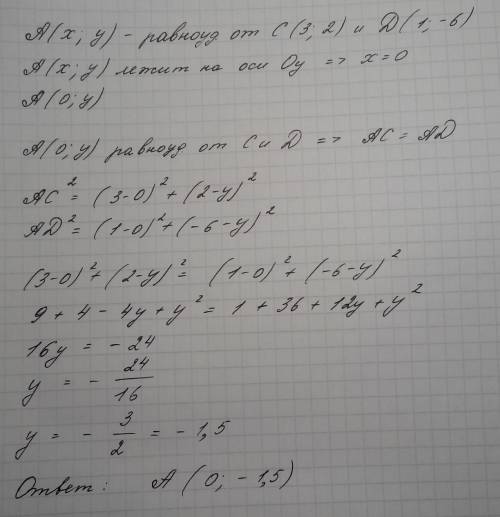 A(x; y) - равноуд от C(3; 2) и D(1; -6)
A(x; y) лежит на оси Oy => x=0
A(0; y)
A(0; y) равноуд от C и D => AC = AD
AC² = (3-0)² + (2-y)²
AD² = (1-0)² + (-6-y)²
(3-0)² + (2-y)² = (1-0)² + (-6-y)²
9 + 4 - 4y + y² = 1 + 36 + 12y + y²
16y = - 24
y = - 24/16
y = - 3/2 = - 1,5
Ответ: A (0; - 1,5)